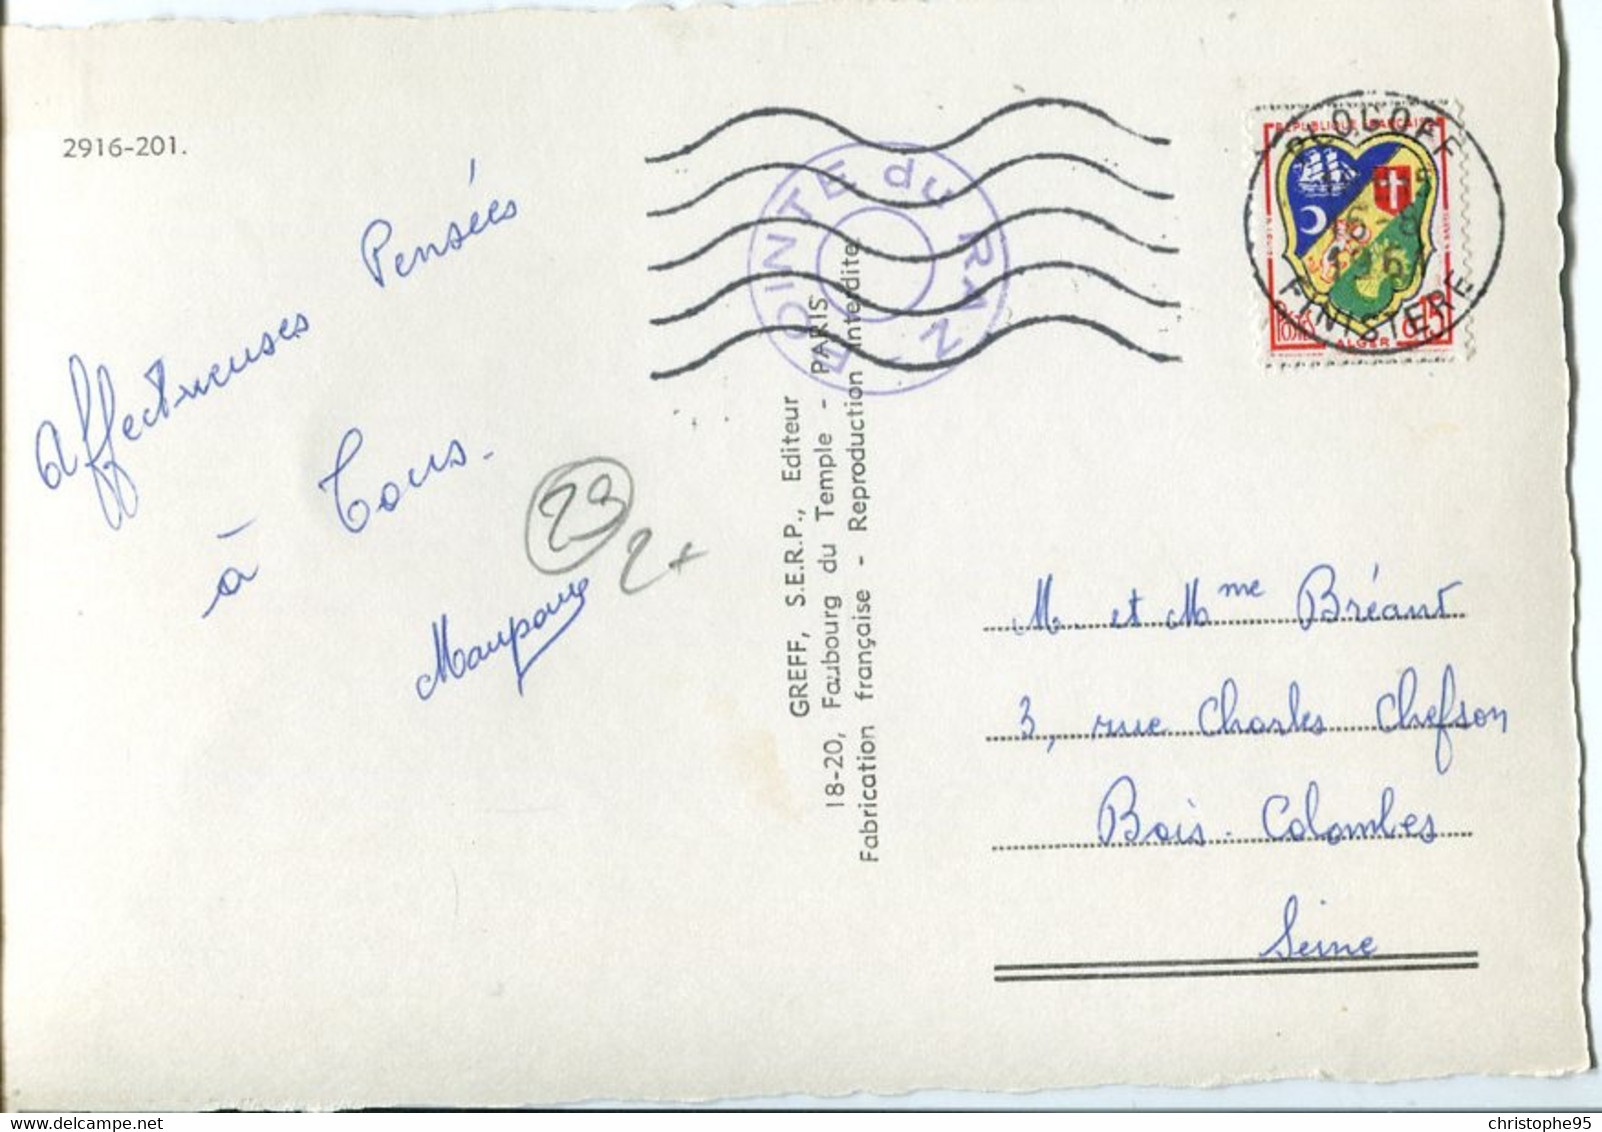 2916-201.
Affectueuses Pensées
à Tous.
29
2+
POINTE du RAZ
GREFF, S.E.R.P., Editeur
18-20, Faubourg du Temple - PARIS
Fabrication française - Reproduction interdite.
REPUBLIQUE FRANÇAISE
POSTES
ALGER
0,15
PLOGOFF
16 - 8
FINISTERE
M. et Mme Bréant
3, rue Charles Chefson
Bois-Colombes
Seine
christophe95